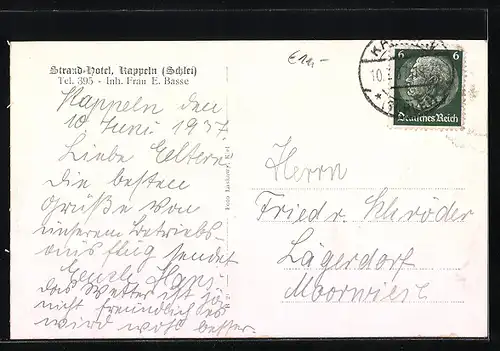 Strand-Hotel, Kappeln (Schlei)
Tel. 395 - Inh. Frau E. Basse
Kappeln den
10 Juni 1937
Liebe Eltern
Die besten
Grüße von
unserem Betriebs-
ausflug sendet
Euch Hans
das Wetter ist ja
nicht freundlich es
wird wohl besser.
Foto
6 6
Deutsches Reich
Herrn
Friedr. Schröder
Lägerdorf
Moorwiese